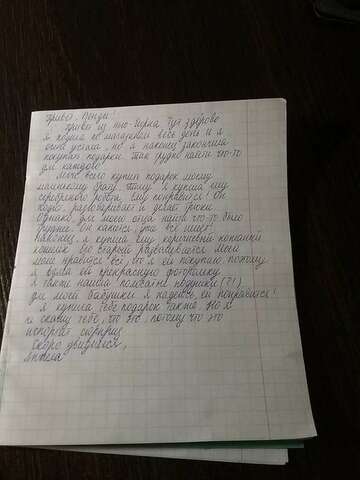 Привет, Венди!
Привет из Нью-Йорка. Тут здорово
Я ходила по магазинам весь день и я
очень устала, но я наконец закончила
покупать подарки. Так трудно найти что-то
для каждого
Легче всего купить подарок моему
маленькому брату. Тому я купила ему
серебряного робота. Ему понравится! Он
ходит, разговаривает и делает трюки.
Однако, для моего отца найти что-то было
труднее. Он кажется, уже всё имеет!
Наконец, я купила ему коричневый кожаный
кошелек. Его старый разваливается. Моей
маме нравится всё, что я ей покупаю поэтому
я взяла ей прекрасную фоторамку
Я также нашла домашние (?!)
для моей бабушки. Я надеюсь, ей понравится!
Я купила тебе подарок также. Но я
не скажу тебе, что это, потому что это
испортит сюрприз
Скоро увидимся,
Анжела